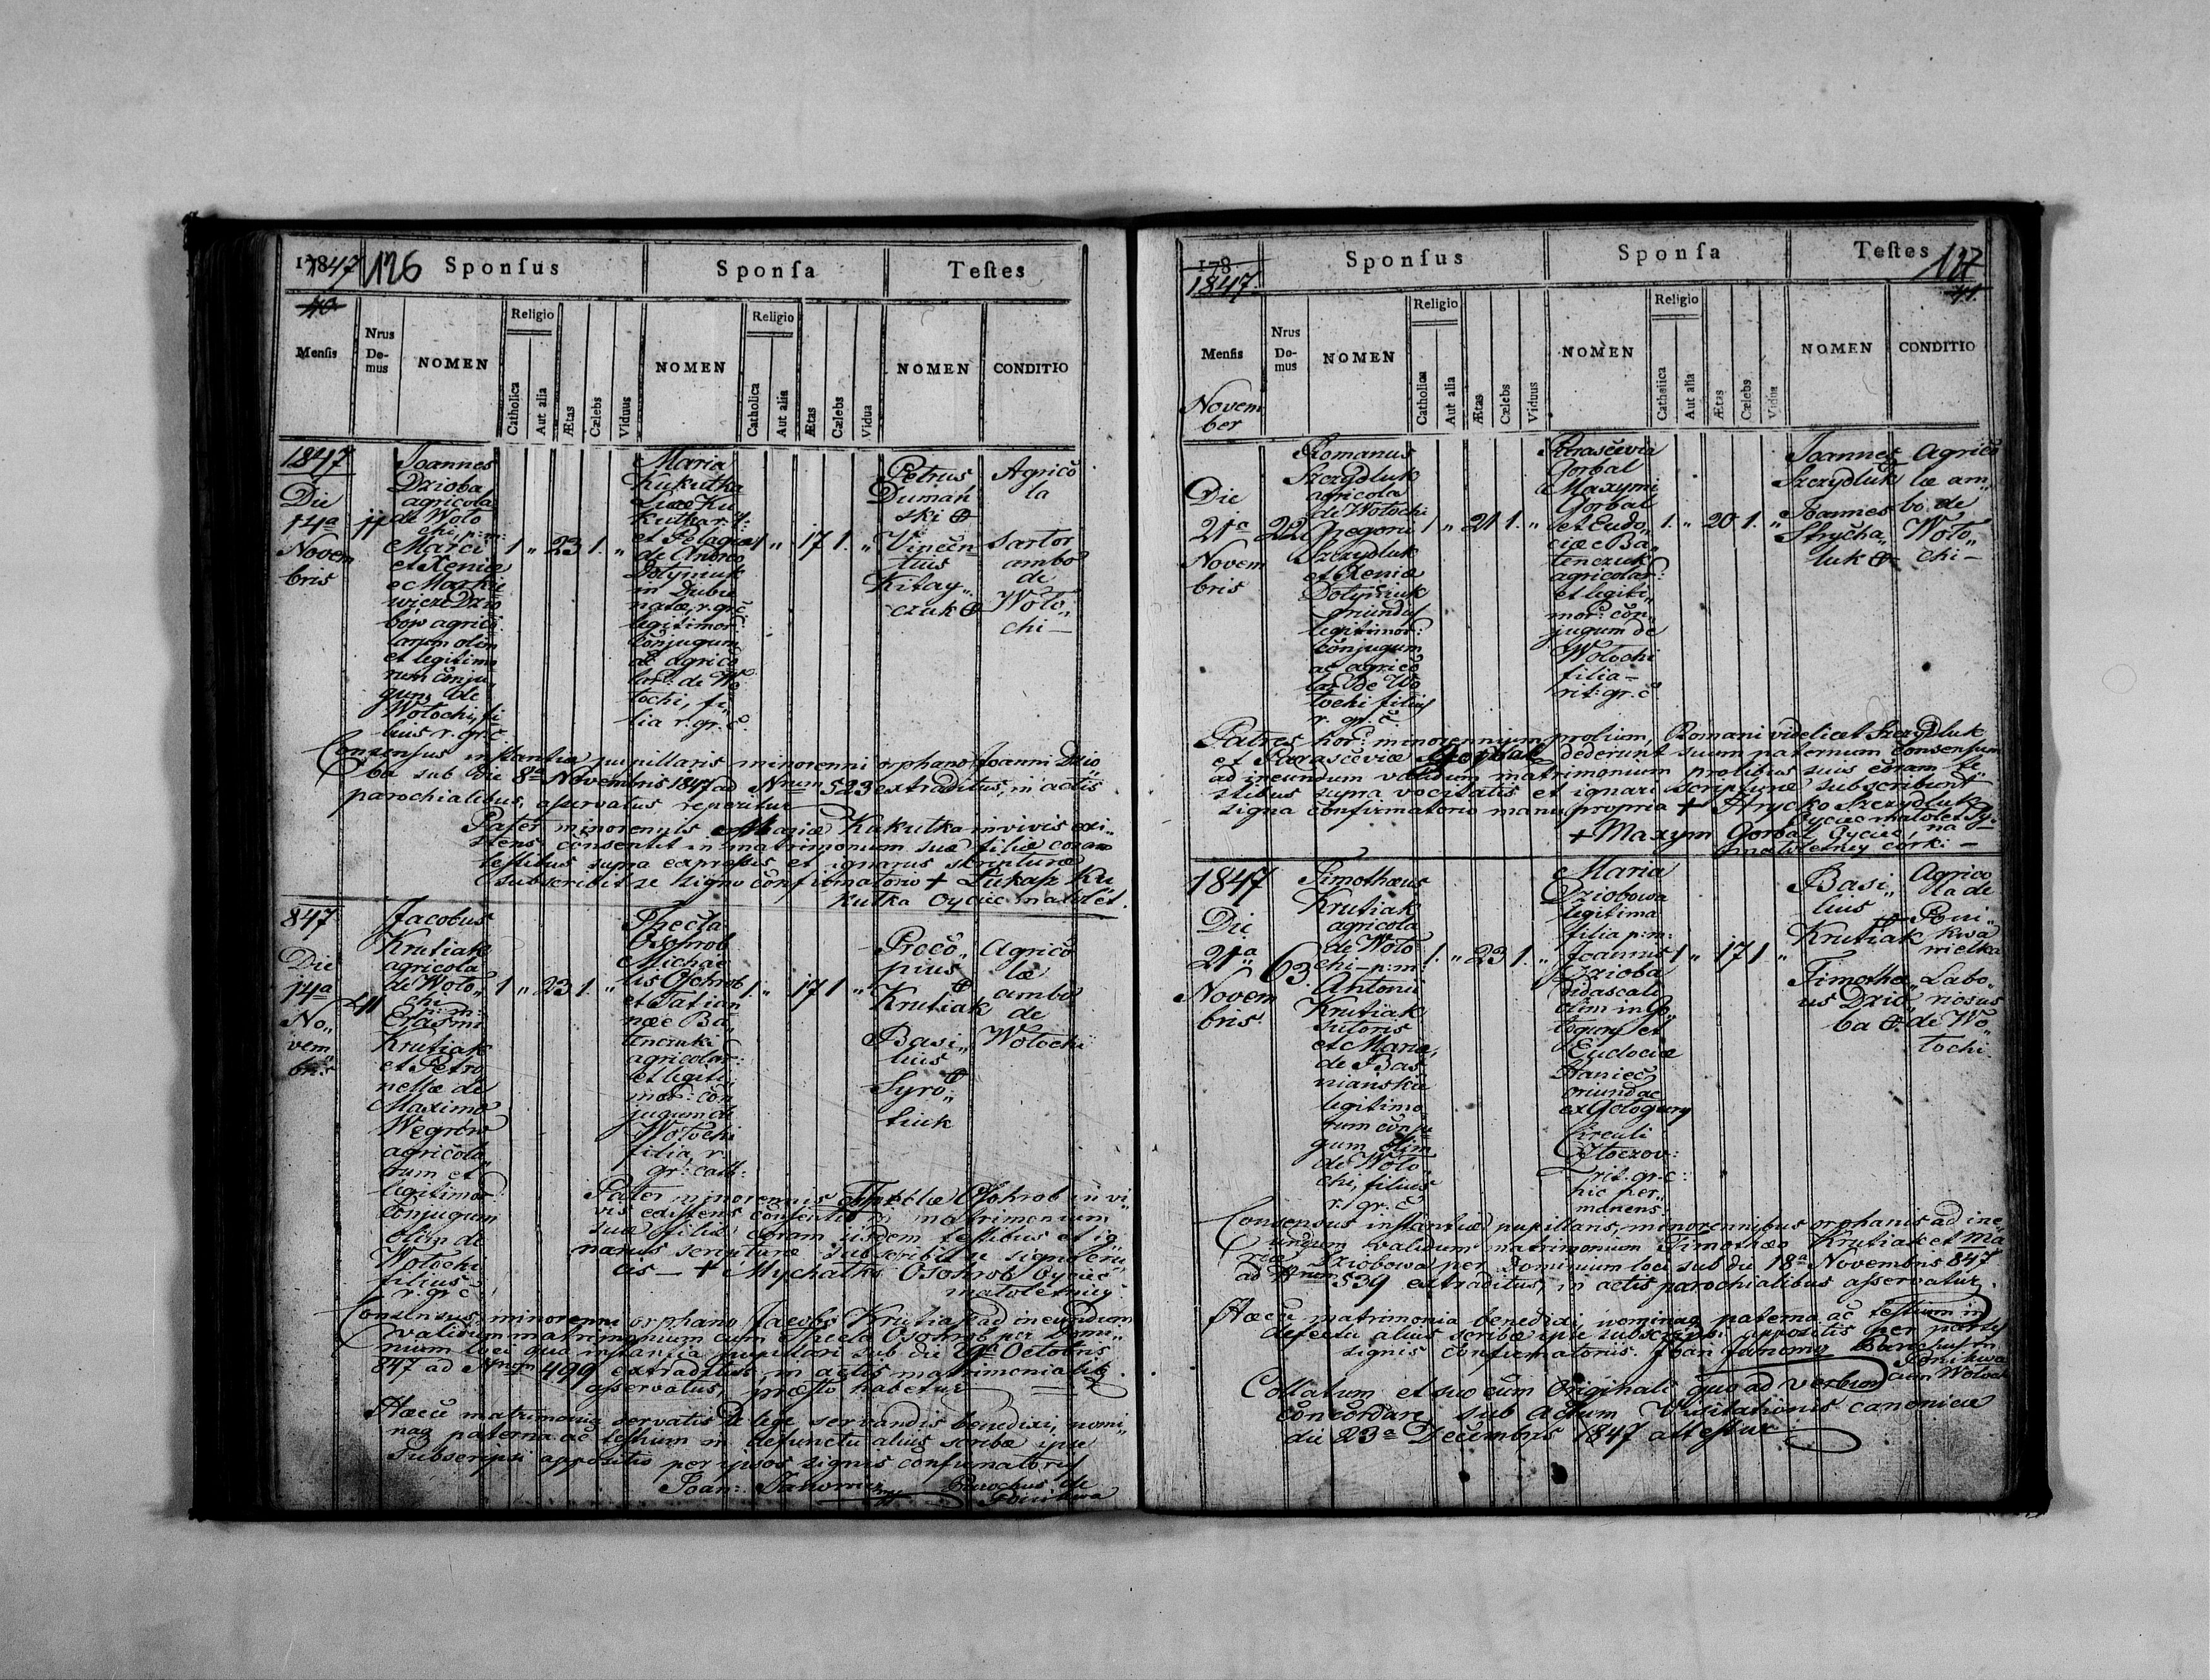 17847 126 Sponſus Sponſa Teſtes
40
Menſis
Nrus Do-mus
NOMEN
Religio
Catholica
Aut alia
Ætas
Cælebs
Viduus
NOMEN
Religio
Catholica
Aut alia
Ætas
Cælebs
Vidua
NOMEN
CONDITIO
1847
Die
14a
Novem
bris
11
Joannes
Dzioba
agricola
de Woło
chi, p: m:
Marci
et Xeniæ
e Markie
wicze Dzio
bów agrico
larum olim
et legitimo
rum conju
gum de
Wołochi, fi
lius r. gr. c.
1 „ 23 1. „
Maria
Kukutka
Lucæ Ku
kutka r. 1:
et Pelagiæ
de Andreo
Dotyniuk
in Dubie
natæ, r. gr. c
legitimor:
Conjugum
ac agrico
lar: de Wo
łochi, fi
lia r. gr. c.
1 „ 17 1. „
Petrus
Dumań
ski
Vincen
tius
Kitay„
czuk
Agrico
la
Sartor
ambo
de
Woło„
chi —
Consensus instantiæ pupillaris minorenni orphano Joanni Dzio
ba sub die 8a Novembris 1847 ad Nrum 523 extraditus, in actis
parochialibus, asservatus reperitur
Pater minorennis Mariæ Kukutka in vivis exi„
stens consentit in matrimonium suæ filiæ coram
testibus supra expressis et ignarus scripturæ
subscribit se signo confirmatorio + Łukasz Ku
kutka Oyciec małolet.
847
Die
14a
No„
vem„
bris
41
Jacobus
Krutiak
agricola
de Woło„
chi p: m:
Erasmi
Krutiak
et Petro
nellæ de
Maximo
Węgrów
agricola„
rum et
legitimor
Conjugum
olim de
Wołochi
filius
r. gr. c.
1 „ 23 1. „
Thecla
Osohrob
Michae
lis Osohrob
et Tatian
næ e Ba„
tenczuki
agricolar:
et legiti„
mor: con
jugum de
Wołochi
filia r.
gr: cath:
1. „ 17 1 „
Proco„
pius
Krutiak
Basi„
lius
Syro„
tiuk
Agrico
læ
ambo
de
Wołochi
Pater minorennis Theclæ Osohrob in vi„
vis existens consentit in matrimonium
suæ filiæ coram iisdem testibus et ig
narus scripturæ subscribit se signo cru„
cis — + Mychałko Osohrob Oyciec
małoletniey
Consensus minorenni orphano Jacobo Krutiak ad ineundum
validum matrimonium cum Thecla Osohrob per Domi„
nium loci qua instantia pupillari sub die 29a Octobris
847 ad Nrum 499 extraditus, in actis matrimonialib
asservatus, præsto habetur
Hæcce matrimonia servatis de lege servandis benedixi, nomi„
naq paterna ac testium in defunctu alius scribæ ipse
Subscripsi appositis per ipsos signis confirmatoriis
Joan: Janowicz Parochus de
Ponikwa
178 Sponſus Sponſa Teſtes 127
1847. 41.
Menſis
Nrus Do-mus
NOMEN
Religio
Catholica
Aut alia
Ætas
Cælebs
Viduus
NOMEN
Religio
Catholica
Aut alia
Ætas
Cælebs
Vidua
NOMEN
CONDITIO
Novem
ber
Die
21a
Novem
bris
22
Romanus
Szczydluk
agricola
de Wołochi
Gregorii
Szczydluk
et Xeniæ
Dotyniuk
oriundus
legitimor:
Conjugum
ac agrico
lar: de Wo
łochi filius
r. gr. c.
1 „ 21 1. „
Parascevia
Gorbal
Maxymi
Gorbal
et Eudo„
ciæ e Ba„
tenczuk
agricolar:
et legiti„
mor: con„
jugum de
Wołochi
filia —
rit: gr. c
1. „ 20 1. „
Joannes
Szczydluk
Joannes
Strycha„
luk
Agrico
læ am„
bo de
Woło„
chi —
Patres hor: minorennium prolium, Romani videlicet Szczydluk
et Parasceviæ Gorbal dederunt suum paternum consensum
ad ineundum validum matrimonium prolibus suis coram te
stibus supra vocitatis et ignari scripturæ subscribunt
signa confirmatorio manu propria + Hryćko Szczydluk
Oyciec małolet. Sy„
+ Maxym Gorbal Oyciec, na
małoletniey córki —
1847
Die
21a
Novem
bris
63.
Timothæus
Krutiak
agricola
de Woło
chi — p: m:
Antonii
Krutiak
sutoris
et Mariæ,
de Bas
nianskie
legitimo
rum conju
gum olim
de Woło„
chi, filius
r. gr. c
1. „ 23 1. „
Maria
Dziobowa
legitima
filia p: m:
Joannis
Dzioba
didascali
olim in Go
łogury et
Eudociæ
Haniec
oriundæ
ex Gołogury
Circuli
Złoczov:
rit. gr. c:
hic per„
manens
1 „ 17 1 „
Basi„
lius
Krutiak
Timothæ„
us Dzio„
ba
Agrico
la de
Poni„
kwa
wielka
Labo„
riosus
de Wo„
łochi
Consensus instantiæ pupillaris, minorennibus orphanis ad ine„
undum validum matrimonium Timothæo Krutiak et Ma
riæ Dziobowa per Dominium loci sub die 18a Novembris 847
ad Nrum 539 extraditus, in actis parochialibus asservatur
Hæcce matrimonia benedixi, nominaq paterna ac testium in
defectu alius scribæ ipse subscripsi appositis per partes
signis confirmatoriis. Joan Janowicz Parochus in
Ponikwa
cum Wołochi
Collatum et suo cum Originali quo ad verbum
concordare sub actum Visitationis canonicæ
die 23a Decembris 1847 attestur